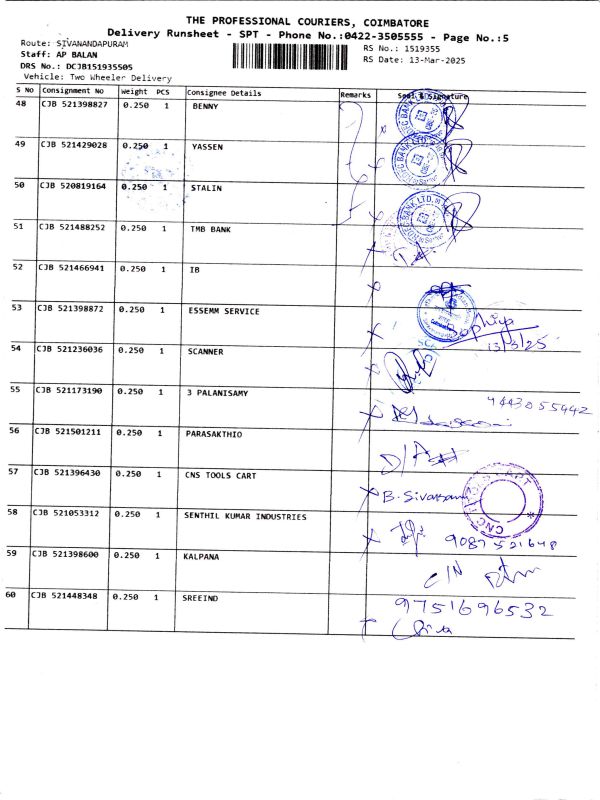 THE PROFESSIONAL COURIERS, COIMBATORE
Delivery Runsheet - SPT - Phone No.:0422-3505555 - Page No.:5
Route: SIVANANDAPURAM
RS No.: 1519355
Staff: AP BALAN
RS Date: 13-Mar-2025
DRS No.: DCJB151935505
Vehicle: Two Wheeler Delivery
S No Consignment No Weight PCS Consignee Details Remarks Seal & Signature
48 CJB 521398827 0.250 1 BENNY
49 CJB 521429028 0.250 1 YASSEN
50 CJB 520819164 0.250 1 STALIN
51 CJB 521488252 0.250 1 TMB BANK
52 CJB 521466941 0.250 1 IB
53 CJB 521398872 0.250 1 ESSEMM SERVICE
Sophiya
13/3/25
54 CJB 521236036 0.250 1 SCANNER
55 CJB 521173190 0.250 1 3 PALANISAMY
9443055942
56 CJB 521501211 0.250 1 PARASAKTHIO
D/A
57 CJB 521396430 0.250 1 CNS TOOLS CART
B. Sivaram
58 CJB 521053312 0.250 1 SENTHIL KUMAR INDUSTRIES
9087521648
59 CJB 521398600 0.250 1 KALPANA
C/N
60 CJB 521448348 0.250 1 SREEIND
9751696532